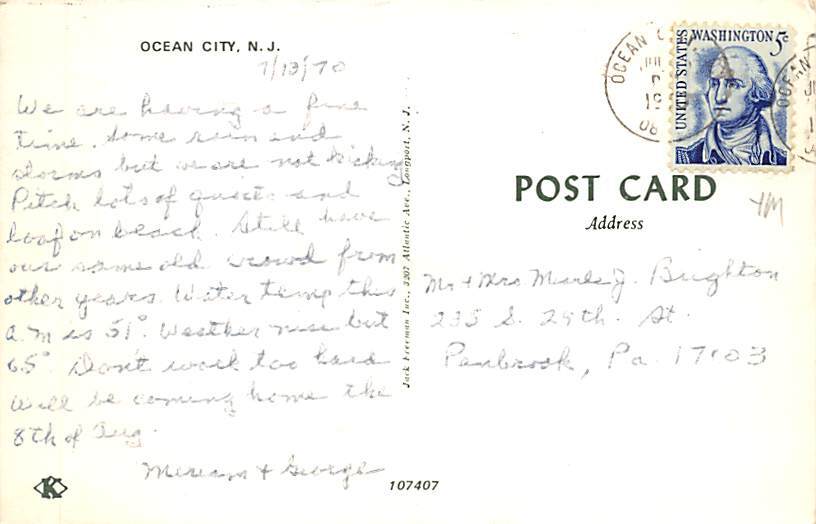 OCEAN CITY, N.J.
7/13/70
We are having a fine
time. Some rain and
storms but we are not kicking
Pitch lots of quoits and
loaf on beach. Still have
our same old crowd from
other years. Water temp this
A.M is 51°. Weather nice but
65°. Don't work too hard
Will be coming home the
8th of Aug.
Miriam + George
107407
K
Jack Freeman Inc., 3207 Atlantic Ave., Longport, N. J.
OCEAN
JUL
19
08
UNITED STATES WASHINGTON 5c
OCEAN
POST CARD
Address
Mr + Mrs J. Brighton
235 S. 29th. St.
Penbrook, Pa. 17103